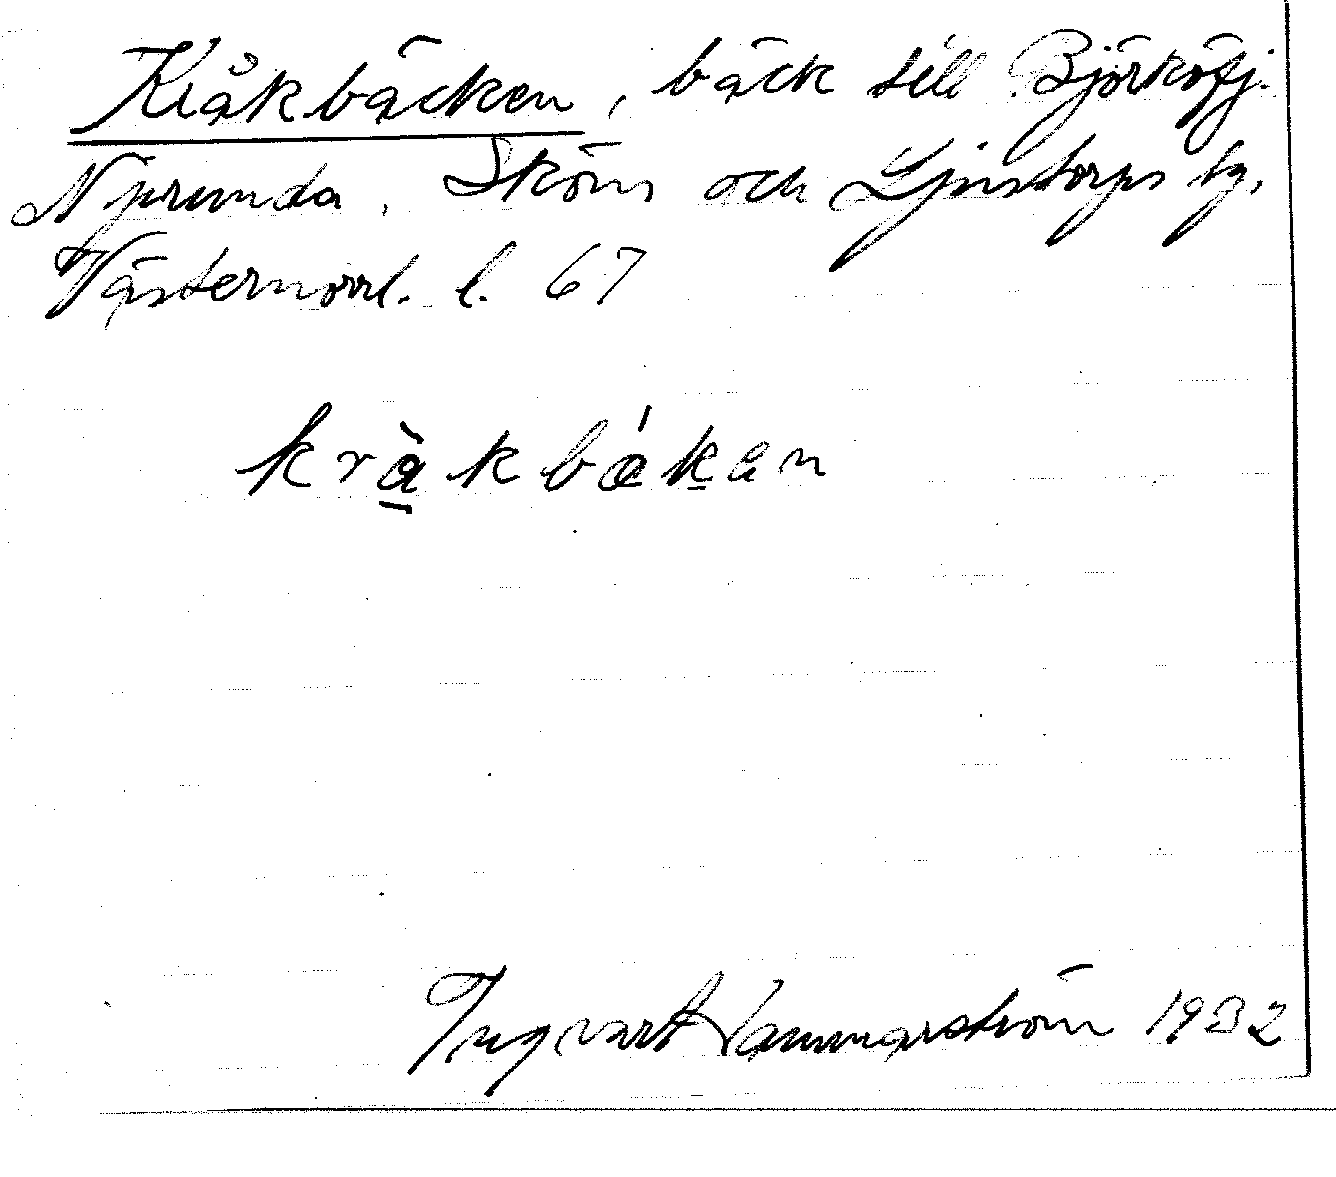 Kråkbäcken, bäck till Björköfj.
Njurunda, Sköns och Ljustorps tg,
Västernorrl. l. 67
kràkbákan
Ingvart Hammarström 1932